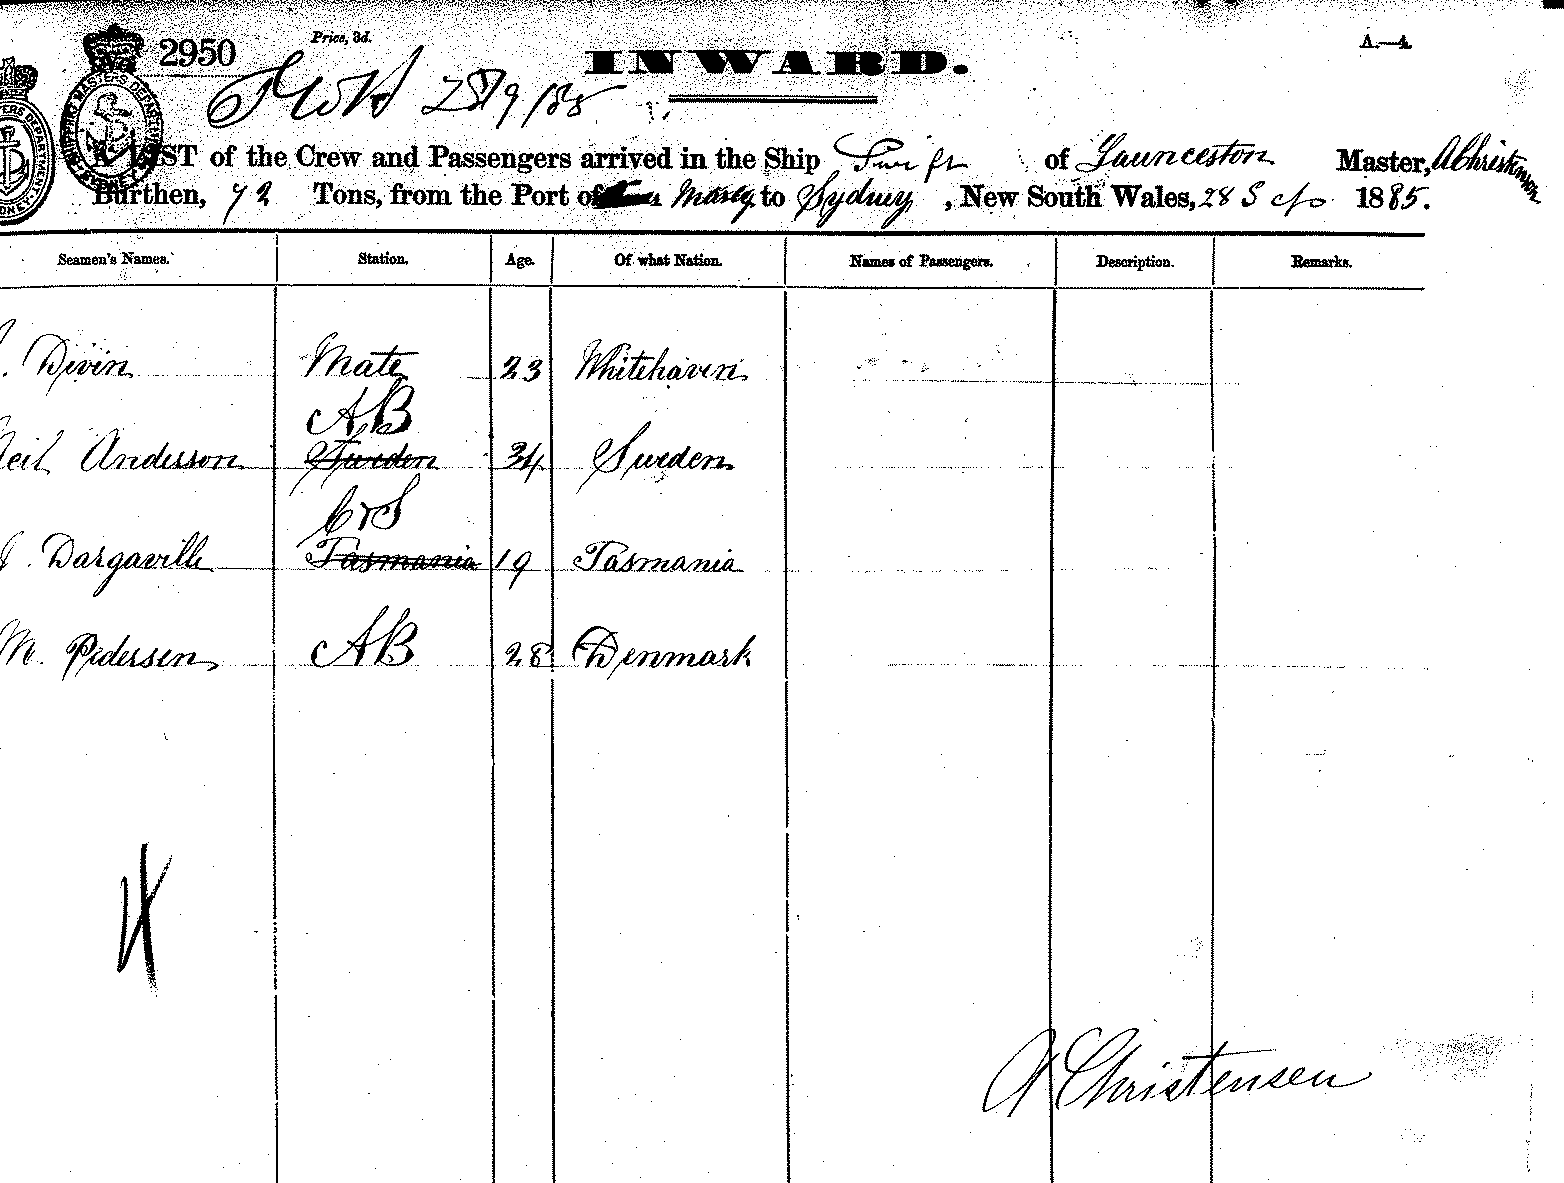 2950 Price, 3d. INWARD. A.—4.
28/9/85
A LIST of the Crew and Passengers arrived in the Ship Swift of Launceston Master, A Christenson
Burthen, 72 Tons, from the Port of Mary to Sydney, New South Wales, 28 Sep 1885.
Seamen's Names. Station. Age. Of what Nation. Names of Passengers. Description. Remarks.
. Divin Mate 23 Whitehaven
AB
Neil Anderson Sweden 34 Sweden
O S
J. Dargaville Tasmania 19 Tasmania
M. Pedersen AB 28 Denmark
4
A Christensen